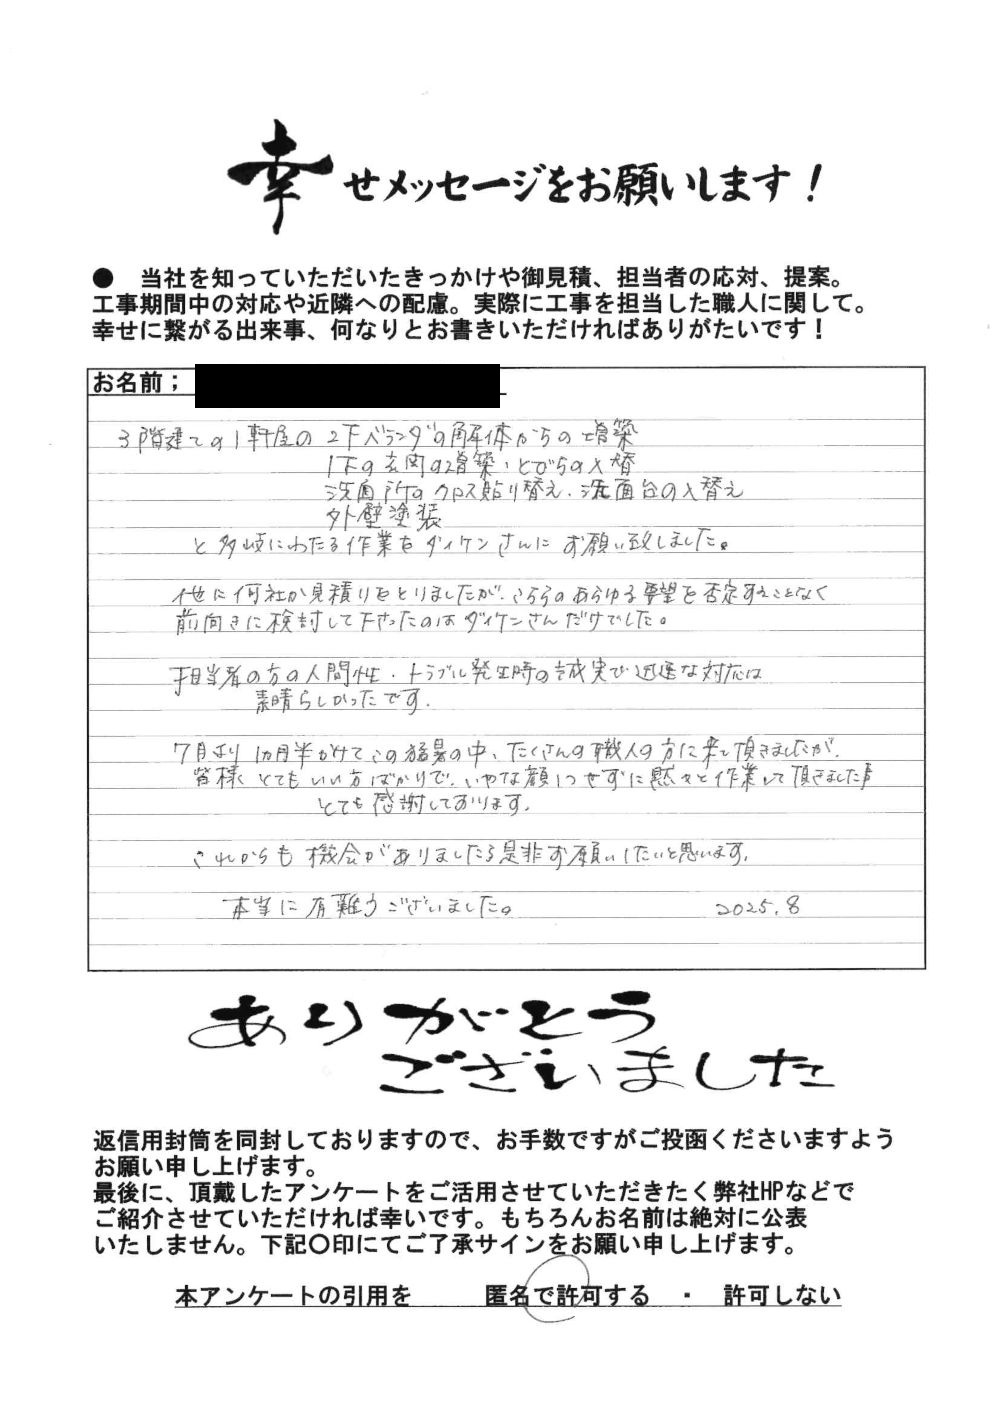 幸せメッセージをお願いします！
● 当社を知っていただいたきっかけや御見積、担当者の応対、提案。
工事期間中の対応や近隣への配慮。実際に工事を担当した職人に関して。
幸せに繋がる出来事、何なりとお書きいただければありがたいです！
お名前；
3階建ての1軒屋の2下ベランダの解体からの増築
1下の玄関の増築・とびらの入替
洗面所のクロス貼り替え・洗面台の入替え
外壁塗装
と多岐にわたる作業をダイケンさんにお願い致しました。
他に何社か見積りをとりましたが、こちらのあらゆる要望を否定することなく
前向きに検討して下さったのはダイケンさんだけでした。
担当者の方の人間性・トラブル発生時の誠実で迅速な対応は
素晴らしかったです。
7月より1カ月半かけてこの猛暑の中、たくさんの職人の方に来て頂きましたが、
皆様とてもいい方ばかりで、いやな顔1つせずに黙々と作業して頂きました事
とても感謝しております。
これからも機会がありましたら是非お願いしたいと思います。
本当に有難うございました。 2025.8
ありがとう
ございました
返信用封筒を同封しておりますので、お手数ですがご投函くださいますよう
お願い申し上げます。
最後に、頂戴したアンケートをご活用させていただきたく弊社HPなどで
ご紹介させていただければ幸いです。もちろんお名前は絶対に公表
いたしません。下記〇印にてご了承サインをお願い申し上げます。
本アンケートの引用を 匿名で許可する ・ 許可しない